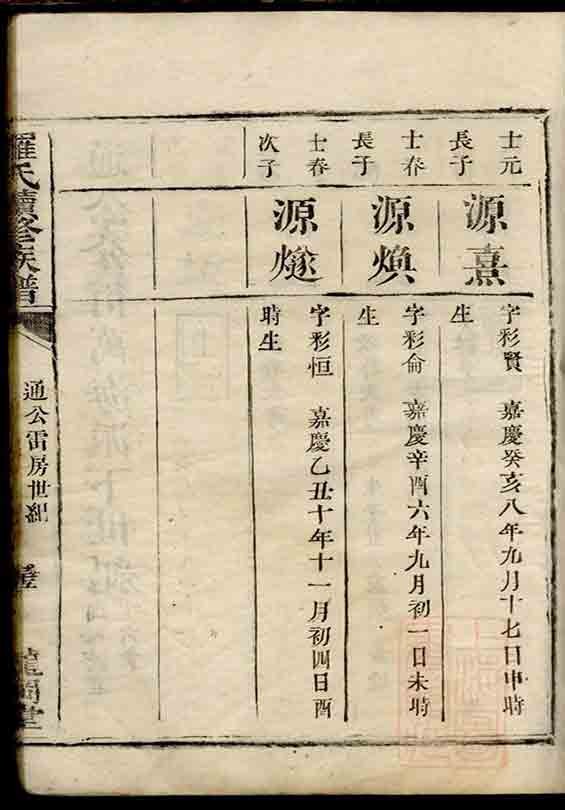 士元
長子
源熹
字彩賢　嘉慶癸亥八年九月十七日申時
生
士春
長子
源煥
字彩侖　嘉慶辛酉六年九月初一日未時
生
士春
次子
源燧
字彩恒　嘉慶乙丑十年十一月初四日酉
時生
羅氏續修族譜
通公雷房世紀